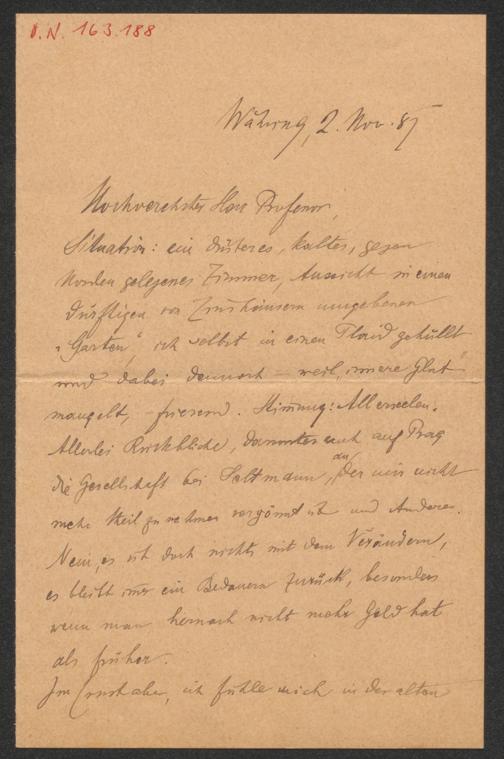 I.N. 163.188
Währing, 2. Nov. 87
Hochverehrter Herr Professor,
Situation: ein düsteres, kaltes, gegen
Norden gelegenes Zimmer, Aussicht in einen
dürftigen von Zinshäusern umgebenen
"Garten", ich selbst in einen Plaid gehüllt
und dabei dennoch – weil "innere Glut"
mangelt, – frierend. Stimmung: Allerseelen.
Allerlei Rückblicke, darunter auch auf Prag
die Gesellschaft bei Saltmann, an der mir nicht
mehr theil zu nehmen vergönnt ist und Anderes.
Nein, es ist doch nichts mit dem Verändern,
es bleibt immer ein Bedauern zurück, besonders
wenn man hernach nicht mehr Geld hat
als früher.
Im Ernst aber, ich fühle mich in der alten